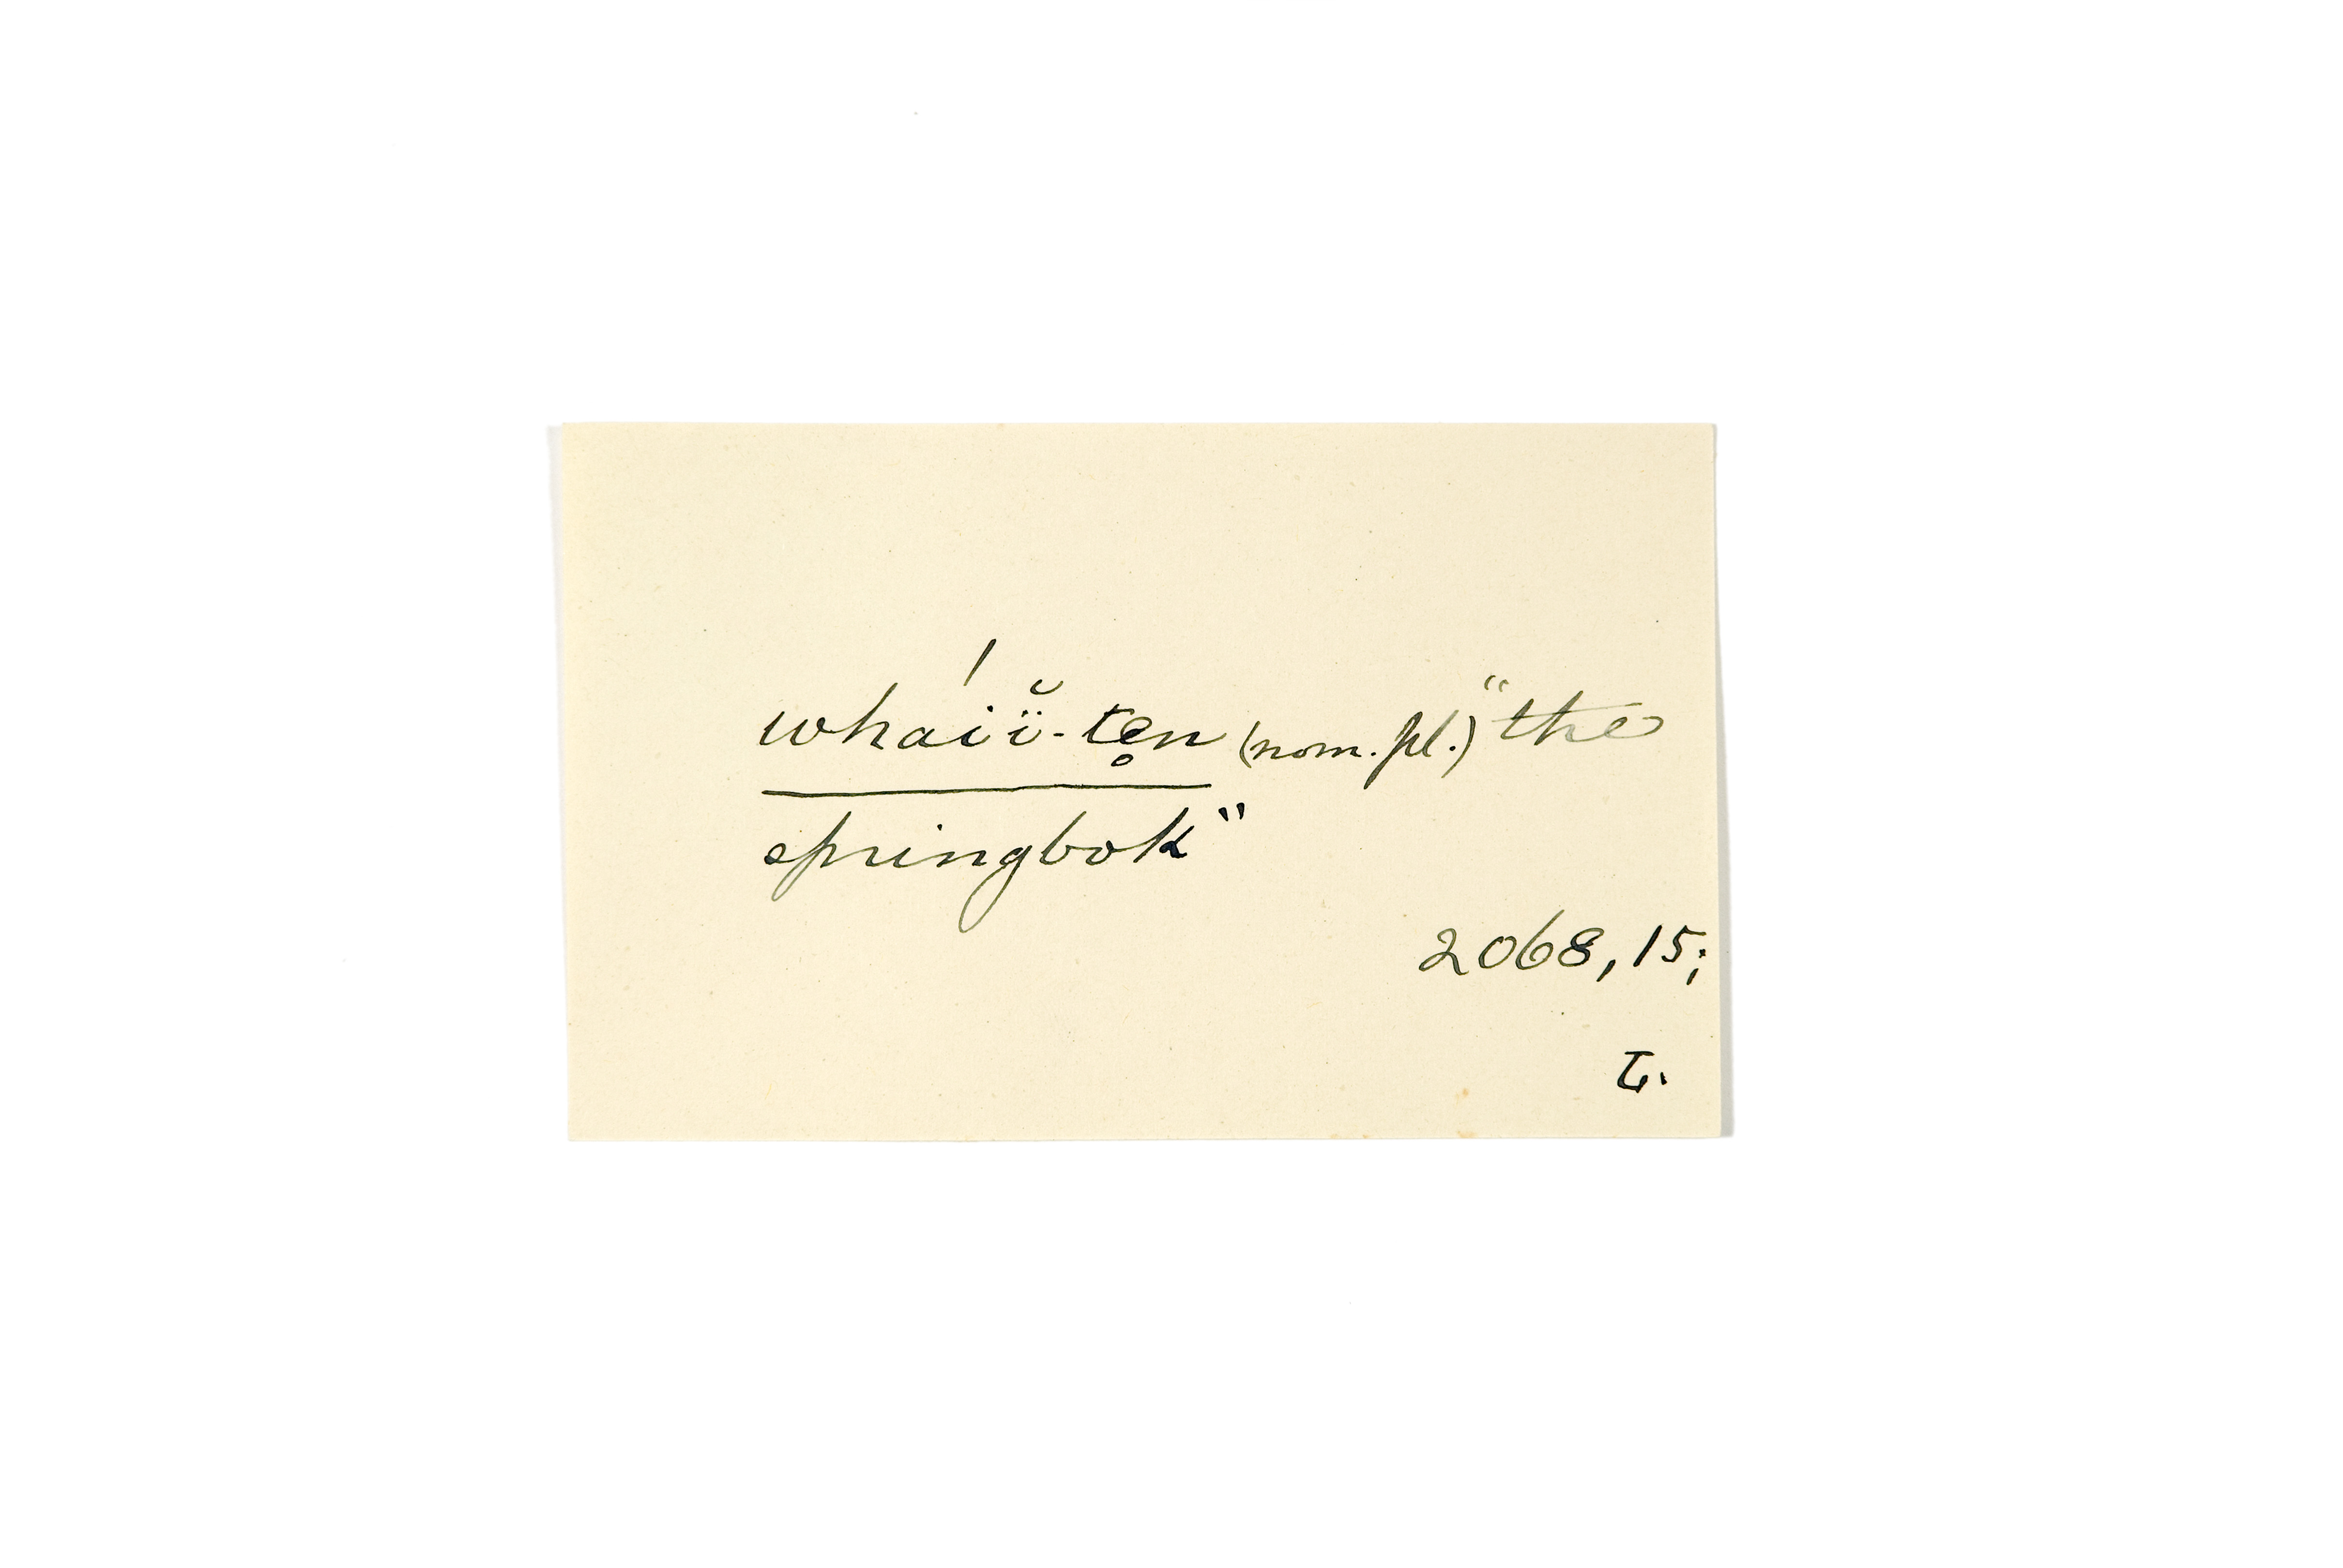 wháiĭ̈-te̥n (nom. pl.) "the
springbok"
2068, 15;